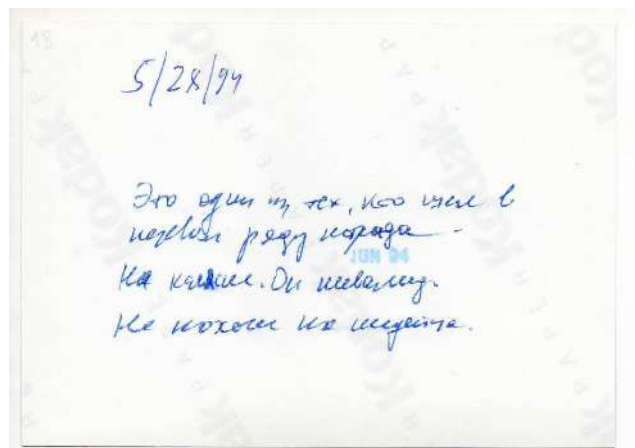 18
5/28/94
Это один из тех, кто шел в
первом ряду парада -
JUN 94
На Он инвалид.
Не похож на индейца.
Kodak